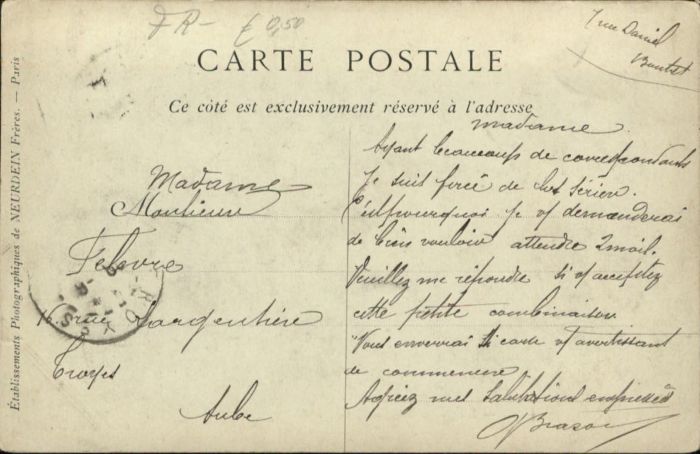 FR- £ 0,50
7 rue Daniel
CARTE POSTALE
Ce côté est exclusivement réservé à l'adresse
Établissements Photographiques de NEURDEIN Frères. — Paris
Madame
Monsieur
Lefevre
16 rue Largentière
Troyes
Aube
Madame.
Ayant beaucoups de correspondants
Je suis forcé de les sérier.
C'est pourquoi je vs demanderai
de bien vouloir attendre 2 mois.
Veuillez me répondre si vs acceptez
cette petite combinaison
Vous enverrai 1 carte vs avertissant
de commencer
Agréez mes salutations empressées